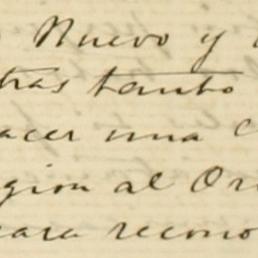 Nuevo y
tras tanto
acer una
gion al Ori
para recono